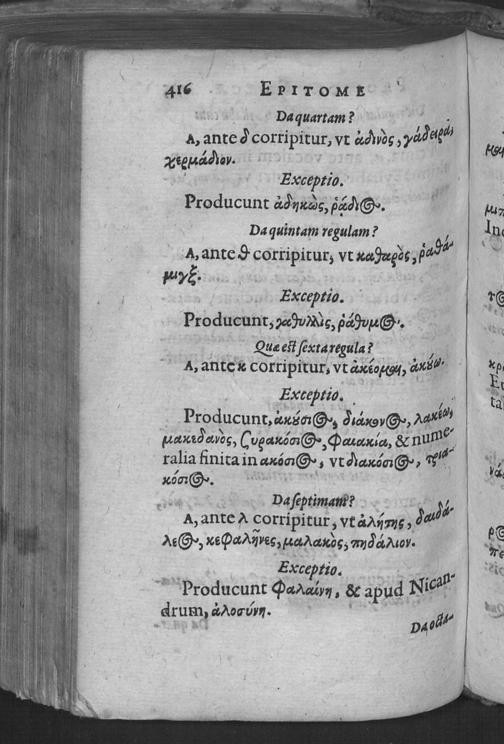 416 EPITOME
Da quartam?
A, ante δ corripitur, vt ἀδινὸς, γάδειρα,
χερμάδιον.
Exceptio.
Producunt ἀδηκὼς, ῥᾴδιος.
Da quintam regulam?
A, ante θ corripitur, vt καθαρὸς, ῥαθά-
μιγξ.
Exceptio.
Producunt, ῥάθυμος.
Quæ est sexta regula?
A, ante κ corripitur, vt ἀκέομαι, ἀκούω.
Exceptio.
Producunt, ἀκούσιος, διάκονος, λακέω,
μακεδανὸς, συρακόσιος, φαιακία, & nume-
ralia finita in ακόσιος, vt διακόσιος, τρια-
κόσιος.
Da septimam?
A, ante λ corripitur, vt ἀλήτης, δαιδά-
λεος, κεφαλῆνες, μαλακὸς, πηδάλιον.
Exceptio.
Producunt φαλαίνη, & apud Nican-
drum, ἁλοσύνη.
Da octa-